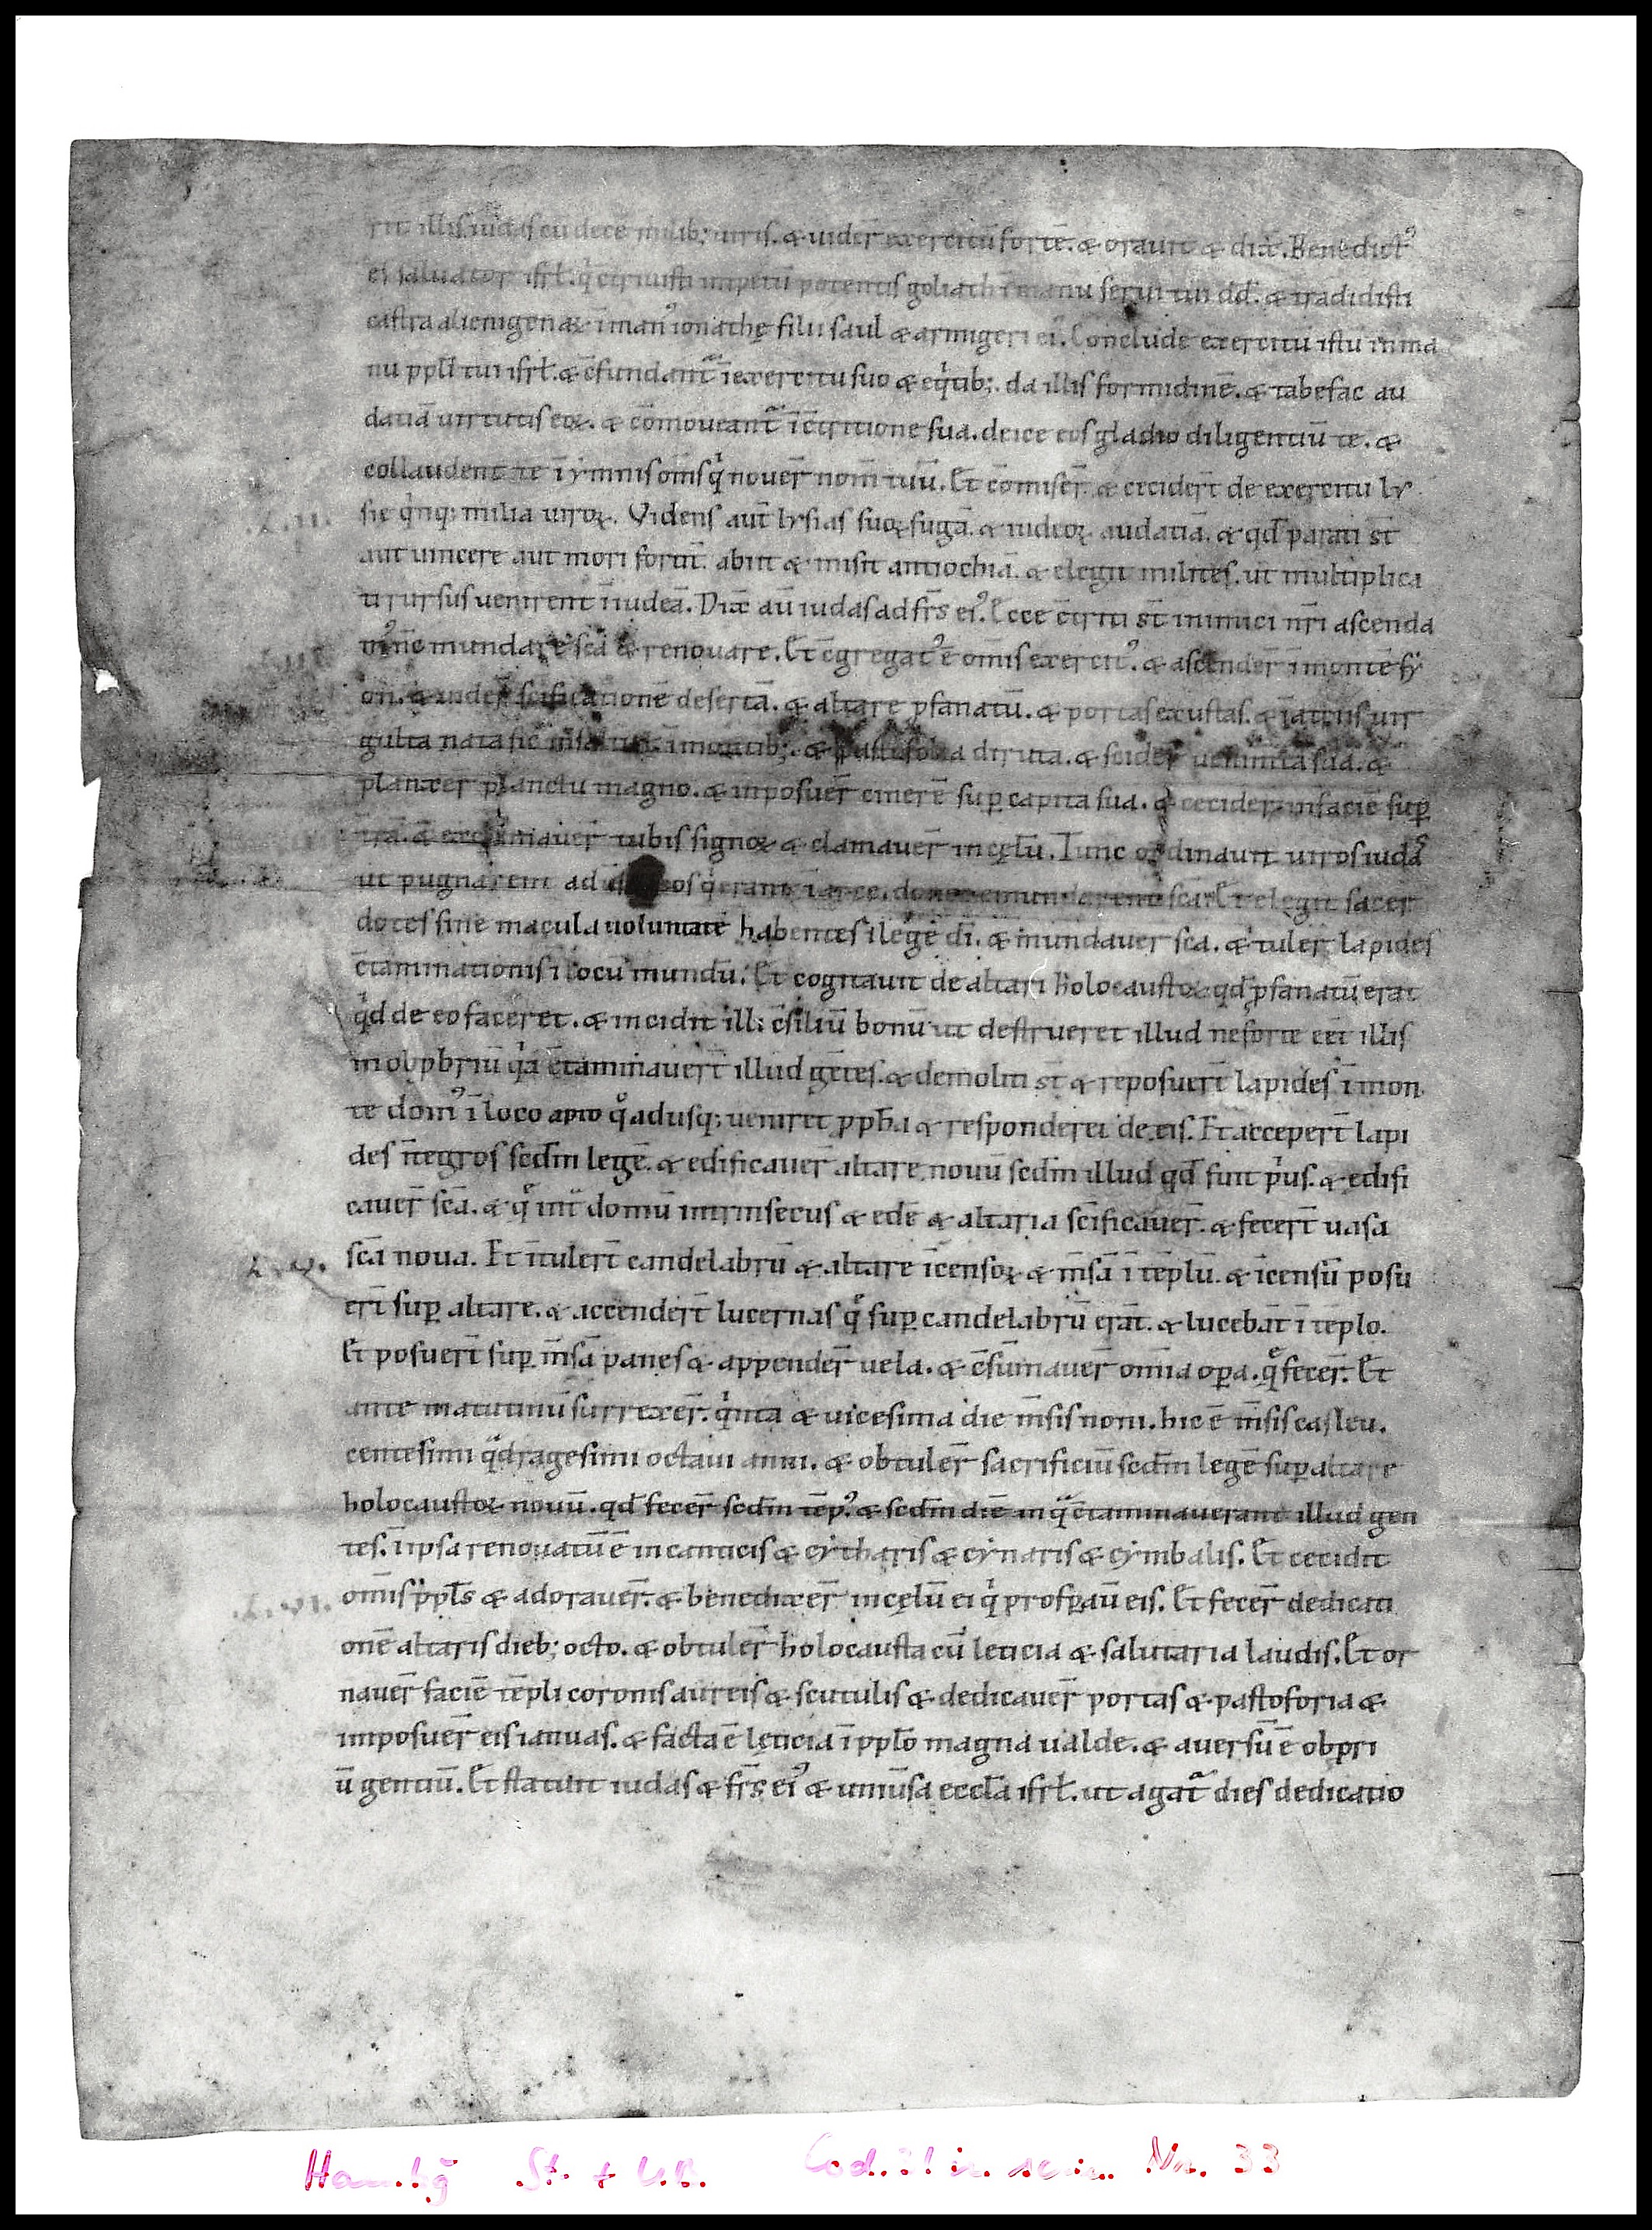 rit illis iudas cū decē milib; uiris. & uider̄ exercitū fortē. & orauit & dix̄. Benedict᾽
es saluator isrl̄. q̇ ctriuisti impetū potentis goliath ī manu serui tui dd̄. & tradidisti
castra alienigenaꝝ ī man᾽ ionathę filii saul & armigeri ei᾽. Conclude exercitū istū in ma
nu ppl̄i tui isrl̄. & c̄fundant᷑ ī exercitu suo & eq̇tib;. da illis formidinē. & tabefac au
datiā uirtutis eoꝝ. & cōmoueant᷑ ī c̄tritione sua. deice eos gladio diligentiū te. &
collaudent te ī ymnis om̄s q̇ nouer̄ nom̄ tuū. Et cōmiser̄. & cecider̄t de exercitu ly
sie q̇nq; milia uiroꝝ. Videns aut̄ lysias suoꝝ fugā. & iudeoꝝ audatiā. & qd̄ parati st̄
aut uincere aut mori fortit̄. abiit & misit antiochiā. & elegit milites. ut multiplica
ti rursus uenirent ī iudeā. Dix̄ au᷑ iudas ad fr̄s ei᾽. Ecce c̄triti st̄ inimici nr̄i ascenda
m᾽ nc̄ mundare sc̄a & renouare. Et c̄gregat᾽ ē om̄is exercit᾽. & ascender̄ ī montē sy
on. & uider̄ sc̄ificationē desertā. & altare ꝓfanatū. & portas exustas. & ī atriis uir
gulta nata sic in saltu. ī montib;. & pastoforia diruta. & scider̄ uestimta sua. &
planxer̄ planctu magno. & inposuer̄ cinerē sup̱ capita sua. & cecider̄ in faciē sup̱
trā. & exclamauer̄ tubis signoꝝ & clamauer̄ in cęlū. Tunc ordinauit uiros iudas᾽
ut pugnarent ad eos q̇ erant ī arce. donec emundarent sc̄a. Et elegit sacer
dotes sine macula uoluntatē habentes ī lege dī. & mundauer̄ sc̄a. & tuler̄ lapides
c̄taminationis ī locū mundū. Et cogitauit de altari holocaustoꝝ qd̄ ꝓfanatū erat
q̇d de eo faceret. & incidit illi c̄siliū bonū ut destrueret illud ne forte eēt illis
in obp̱briū q̇a c̄taminauer̄t illud gētes. & demoliti st̄ & reposuer̄t lapides ī mon
te dom᾽ ī loco apto q̊adusq; ueniret ꝓph̄a & responderet de eis. Et acceper̄t lapi
des īntegros scdm̄ legē. & edificauer̄ altare nouū scdm̄ illud qd̄ fuit p̍us. & edifi
cauer̄ sc̄a. & q̊ int᷑ domū intrinsecus & edē & altaria sc̄ificauer̄. & fecer̄t uasa
sc̄a noua. Et ītuler̄t candelabrū & altare īcensoꝝ & m̄sā ī tēplū. & īcensū posu
er̄t sup̱ altare. & accender̄t lucernas q̊ sup̱ candelabrū erāt. & lucebāt ī tēplo.
Et posuer̄t sup̱ m̄sā panes & appender̄ uela. & c̄sūmauer̄ om̄ia op̱a. q̊ fecer̄. Et
ante matutinū surrexer̄. q̇nta & uicesima die m̄sis noni. hic ē m̄sis casleu.
centesimi q̊dragesimi octaui anni. & obtuler̄ sacrificiū scdm̄ legē sup̱ altare
holocaustoꝝ nouū. qd̄ fecer̄ scdm̄ tēp᾽. & scdm̄ diē in q̊ c̄taminauerant illud gen
tes. ī ipsa renouatū ē in canticis & cytharis & cynaris & cymbalis. Et cecidit
om̄is ppl̄s & adorauer̄. & benedixer̄ in cęlū ei q̇ prosp̱auit eis. Et fecer̄ dedicati
onē altaris dieb; octo. & obtuler̄ holocausta cū leticia & salutaria laudis. Et or
nauer̄ faciē tēpli coronis aureis & scutulis & dedicauer̄ portas & pastoforia &
imposuer̄ eis ianuas. & facta ē lęticia ī ppl̄o magna ualde. & auersū ē obpri
ū gentiū. Et statuit iudas & fr̄s ei᾽ & uniu᷑sa eccl̄a isrl̄. ut agat᷑ dies dedicatio
L.v.
L.vi.
Hambg St. + U.B. Cod. in scrin. Nr. 33